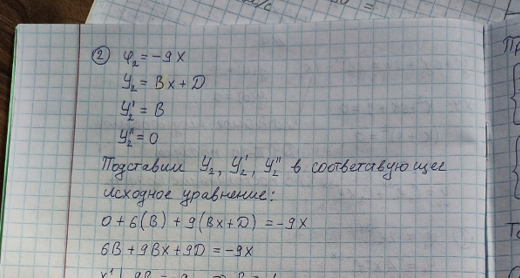 ② φ₂ = -9x
y₂ = Bx + D
y₂' = B
y₂'' = 0
Подставим y₂, y₂', y₂'' в соответсвующее
исходное уравнение:
0 + 6(B) + 9(Bx + D) = -9x
6B + 9Bx + 9D = -9x